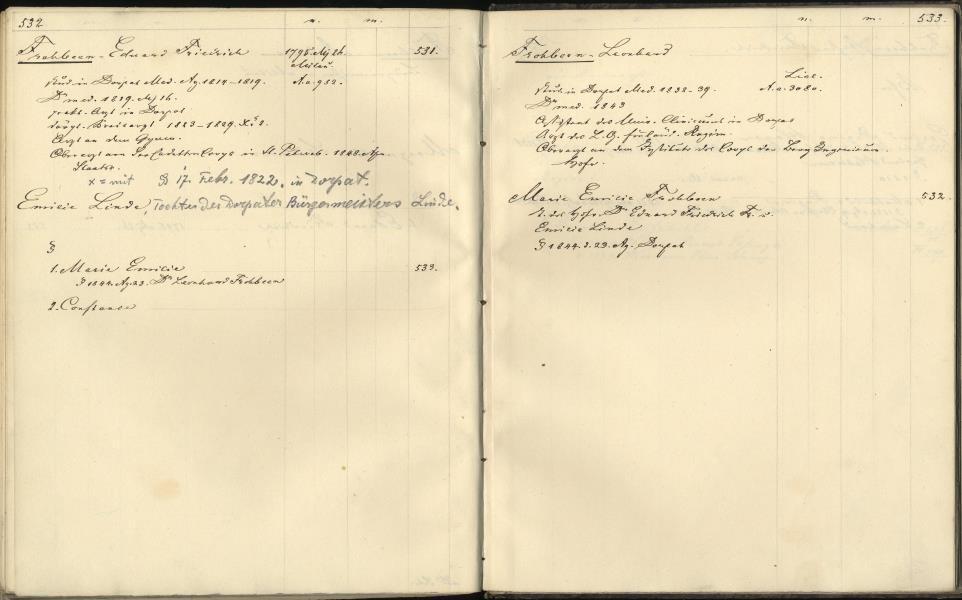 532 n. m.
Frohbeen - Eduard Friedrich 1795 531.
Mitau.
stud in Dorpat Med. Ag. 1814-1819. A.a. 952.
Dr med. 1819.
prakt. Arzt in Dorpat
Kreisarzt 1823-1829.
Arzt an dem Gymn.
Oberarzt am Cadettencorps in St. Petersb.
Staatsr.
x = mit 17. Febr. 1822. in Dorpat.
Emilie Linde, Tochter des Dorpater Bürgermeisters Linde.
1. Marie Emilie 533.
1844. Ag. 23. Dr Leonhard Frohbeen
2. Constance
n. m. 533.
Frohbeen - Leonhard
Livl.
stud. in Dorpat Med. 1832-39. A.a. 3080.
Dr med. 1843
Assistent des Univ. Clinicums in Dorpat
Arzt des L. G. finländ. Regim.
Oberarzt an dem Institute des Corps der Berg Ingenieure.
Hofr.
Marie Emilie Frohbeen 532.
T. des Hofr. Dr Eduard Friedrich Fr. u.
Emilie Linde
1844. d. 23. Ag. Dorpat